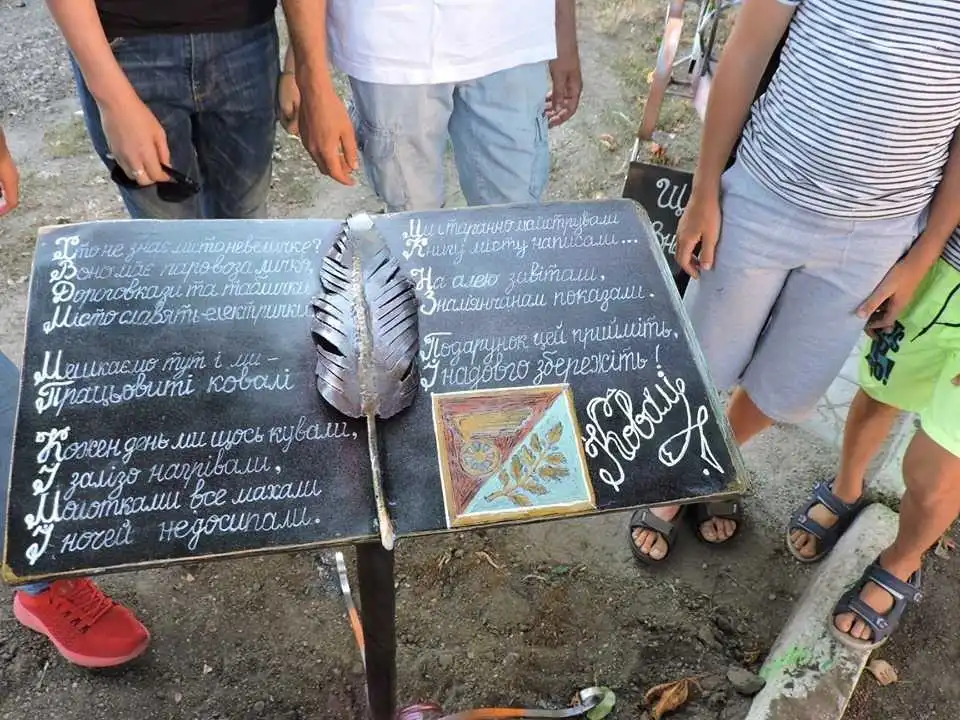 Хто не знає місто невеличке?
Воно має паровоза личко,
Дороговкази та таблички
Місто славять електрички.
Мешкаємо тут і ми –
Працьовиті ковалі
Кожен день ми щось кували,
У залізо нагрівали,
Молотками все махали
У ночей недосипали.
Ми старанно майстрували
Книгу місту написали...
На алею завітали,
Знам'янчанам показали.
Подарунок цей прийміть,
І надового збережіть!
Ковалі
Щ